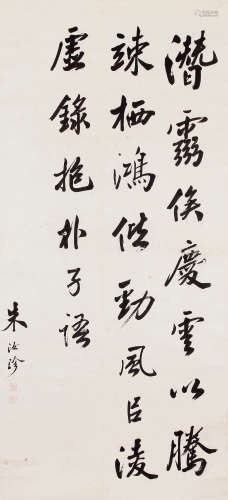 潛靈俟慶雲以騰
竦栖鴻偕勁風㠯淩
虛錄抱朴子語
朱汝珍